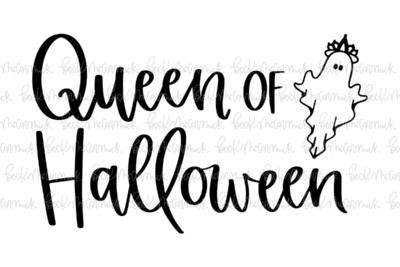 Queen OF
Halloween